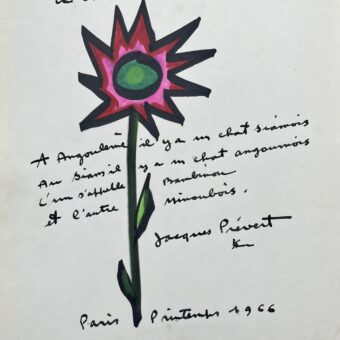 A Angoulême il y a un chat siamois
Au Siam il y a un chat angoumois
L'un s'appelle Bambinou
et l'autre Minoubois.
Jacques Prévert
Paris Printemps 1966